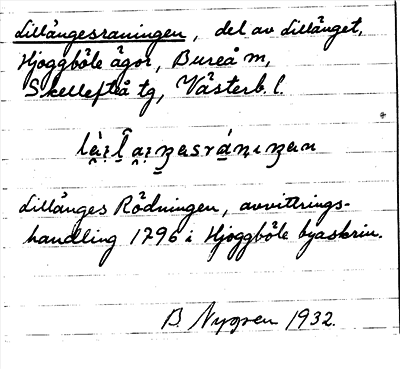 Lillångesraningen, del av Lillånget,
Hjoggböle ägor, Bureå sn,
Skellefteå tg, Västerb. l.
Lillånges Rödningen, avvittrings-
handling 1796 i Hjoggböle byaskrin.
B. Nygren 1932.